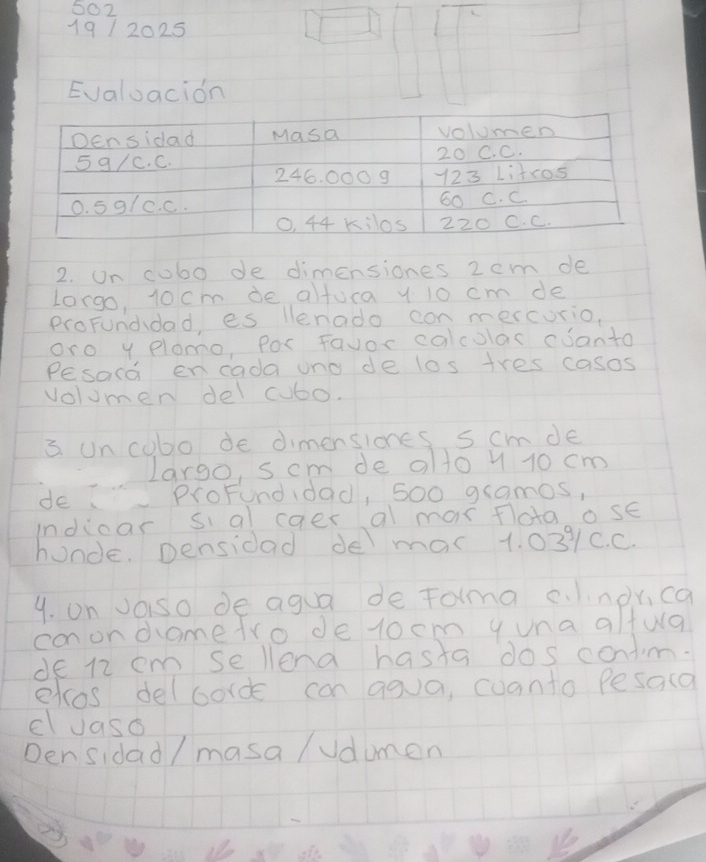 502
19/2025
Evaluación
Densidad Masa volumen
5g/c.c. 20 c.c.
246.000g 123 Litros
0.5g/c.c. 60 c.c
0,44 Kilos 220 c.c.
2. un cubo de dimensiones 2cm de
largo, 10cm de altura y 10 cm de
profundidad, es llenado con mercurio,
oro y plomo, por favor calcular cuanto
pesará en cada uno de los tres casos
volumen del cubo.
3. un cubo de dimensiones 5 cm de
largo, 5 cm de alto y 10 cm
de profundidad, 500 gramos,
indicar si al caer al mar flota o se
hunde. Densidad del mar 1.03g/c.c.
4. un vaso de agua de forma cilindrica
con un diametro de 10cm y una altura
de 12 cm se llena hasta dos centim-
etros del borde con agua, cuanto pesara
el vaso
Densidad/masa/volumen